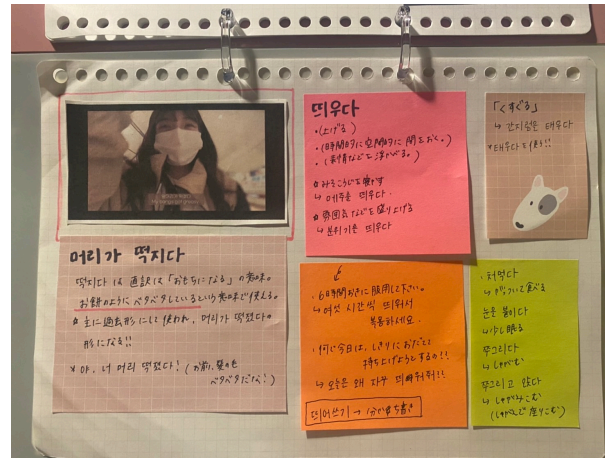 머리가 떡지다
떡지다 は 直訳は「おもちになる」の意味。
お餅のように ベタベタしているという意味で使える。
主に過去形にして使われ、머리가 떡졌다の
形になる!!
* 야, 너 머리 떡졌다! (お前、髪の毛
ベタベタだな!)
띄우다
・(上げる)
・(時間的に空間的に間をおく。)
・(表情などを浮かべる。)
みそこうじを
↳ 메주를 띄우다.
雰囲気などを盛り上げる
↳ 분위기를 띄우다
「くすぐる」
↳ 간지럼을 태우다
*태우다を使う!!
・6時間おきに服用して下さい。
↳ 여섯 시간씩 띄워서
복용하세요.
・何で今日は、しきりにおだてて
持ち上げようとするの!!
↳ 오늘은 왜 자꾸 띄워줘!!
띄어쓰기 → 分かち書き
・처먹다
↳ がっついて食べる
눈을 붙이다
↳ 少し眠る
쭈그리다
↳ しゃがむ
쭈그리고 앉다
↳ しゃがみこむ
(しゃがんで座りこむ)